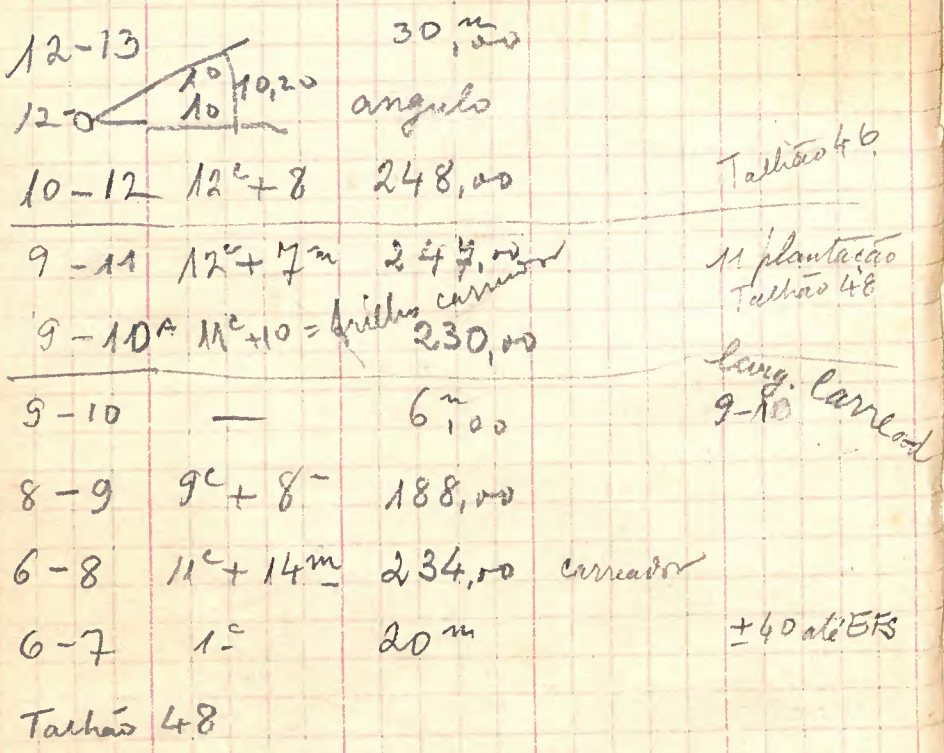 12-13 30,m00
12-0 10 10 10,20 angulo
10-12 12c+8 248,00 Talhão 46
9-11 12c+7m 247,00 11 plantação
Talhão 48
9-10A 11c+10= carreador 230,00
larg. Carread
9-10 — 6m,00 9-10
8-9 9c+8- 188,00
6-8 11c+14m 234,00 carreador
6-7 1c 20m ±40 até EFS
Talhão 48